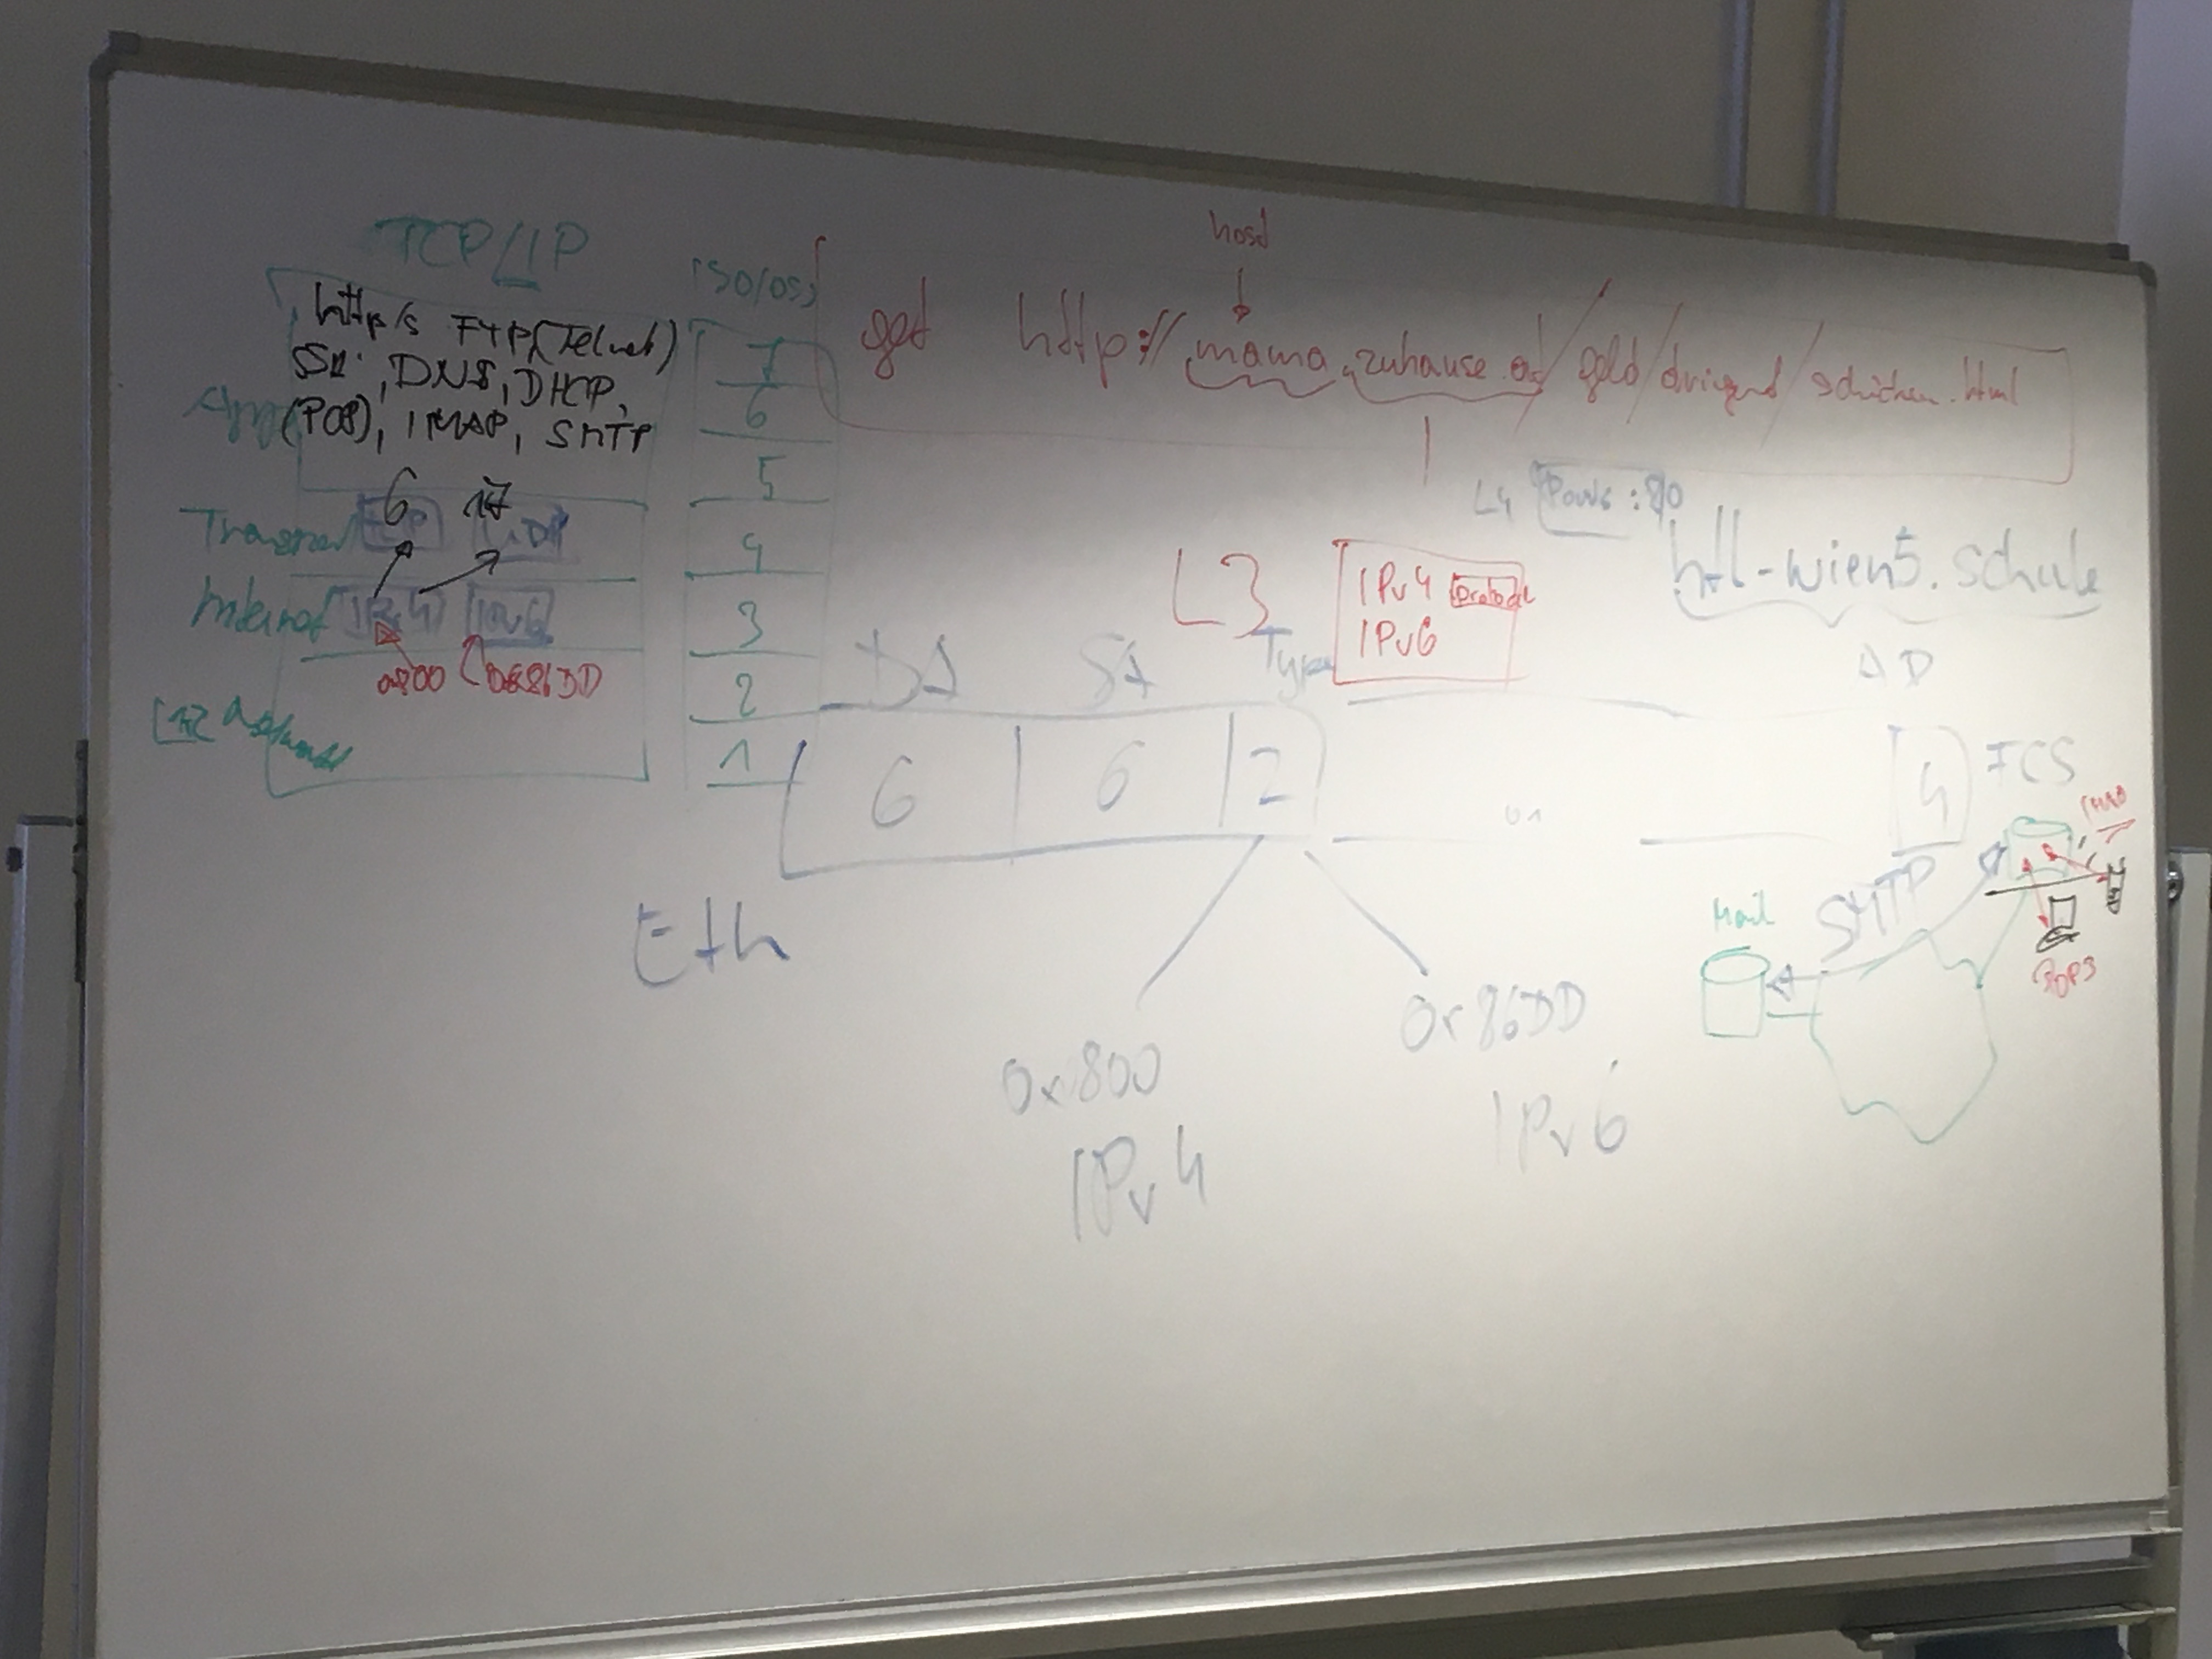 TCP/IP
http/s FTP (Telnet)
DNS, DHCP,
(POP), IMAP, SMTP
6 17
Transport
Internet IPv4 IPv6
0x800 0x86DD
ISO/OSI
7
6
5
4
3
2
1
host
get http://mama.zuhause.at/geld/dringend/schicken.html
L4 :80
htl-wien5.schule
L3
IPv4
IPv6
AD
DA SA Type
6 6 2 4 FCS
Eth
0x800
IPv4
0x86DD
IPv6
IMAP
SMTP
Mail
POP3